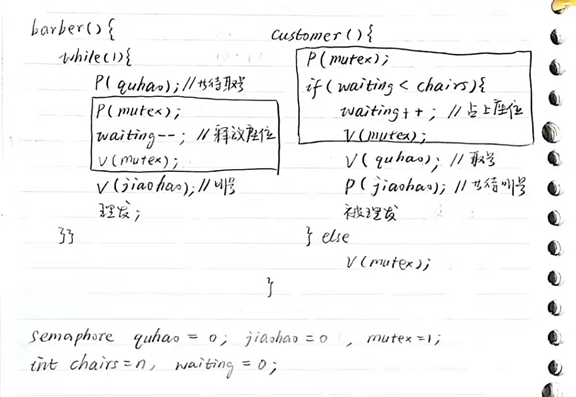 barber(){
while(1){
P(quhao); //共待取号
P(mutex);
waiting--; //释放座位
V(mutex);
V(jiaohao); //叫号
理发;
}}
customer(){
P(mutex);
if(waiting < chairs){
waiting++; //占上座位
V(mutex);
V(quhao); //取号
P(jiaohao); //共待叫号
被理发
} else
V(mutex);
}
semaphore quhao = 0; jiaohao = 0, mutex=1;
int chairs=n, waiting = 0;